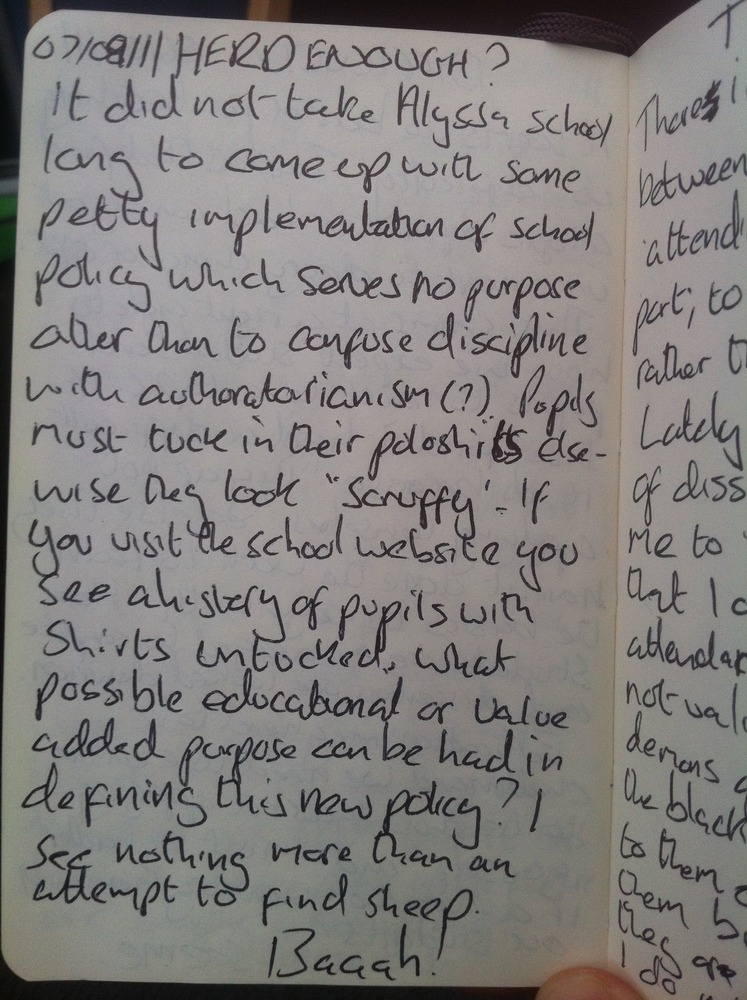 07/09/11 HERD ENOUGH?
It did not take Alyssa school
long to come up with some
petty implementation of school
policy which serves no purpose
other than to confuse discipline
with authoratarianism (?). Pupils
must tuck in their poloshirts else-
wise they look "scruffy". If
you visit the school website you
see a history of pupils with
shirts untucked. What
possible educational or value
added purpose can be had in
defining this new policy? I
see nothing more than an
attempt to find sheep.
Baaah!
T
There's i
between
attend
part, to
rather t
Lately
of diss
me to
that I c
attendan
not val
demons
the black
to them
them b
they are
I do